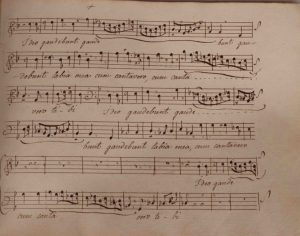 Ideo gaudebunt gaude bunt gau
debunt labia mea, cum cantavero, cum canta
vero ti-bi Ideo gaudebunt gaude
bunt gaudebunt labia mea, cum cantavero
Ideo gaude
cum canta vero ti-bi